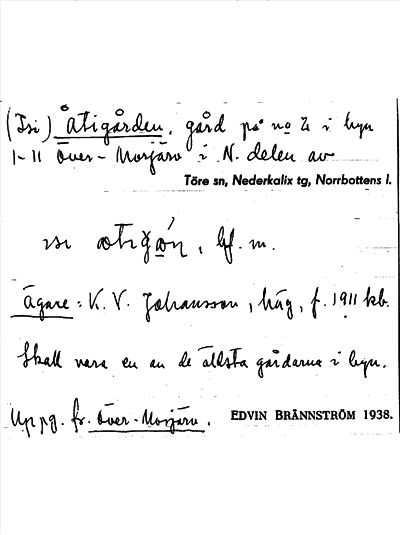 (Isi) Åtigården, gård på no 2 i byn
1-11 Över-Morjärv i N. delen av
Töre sn, Nederkalix tg, Norrbottens l.
bf. m.
Ägare: K. V. Johansson, häg, f. 1911 kb.
Skall vara en av de äldsta gårdarna i byn.
Uppg. fr. Över-Morjärv.
EDVIN BRÄNNSTRÖM 1938.